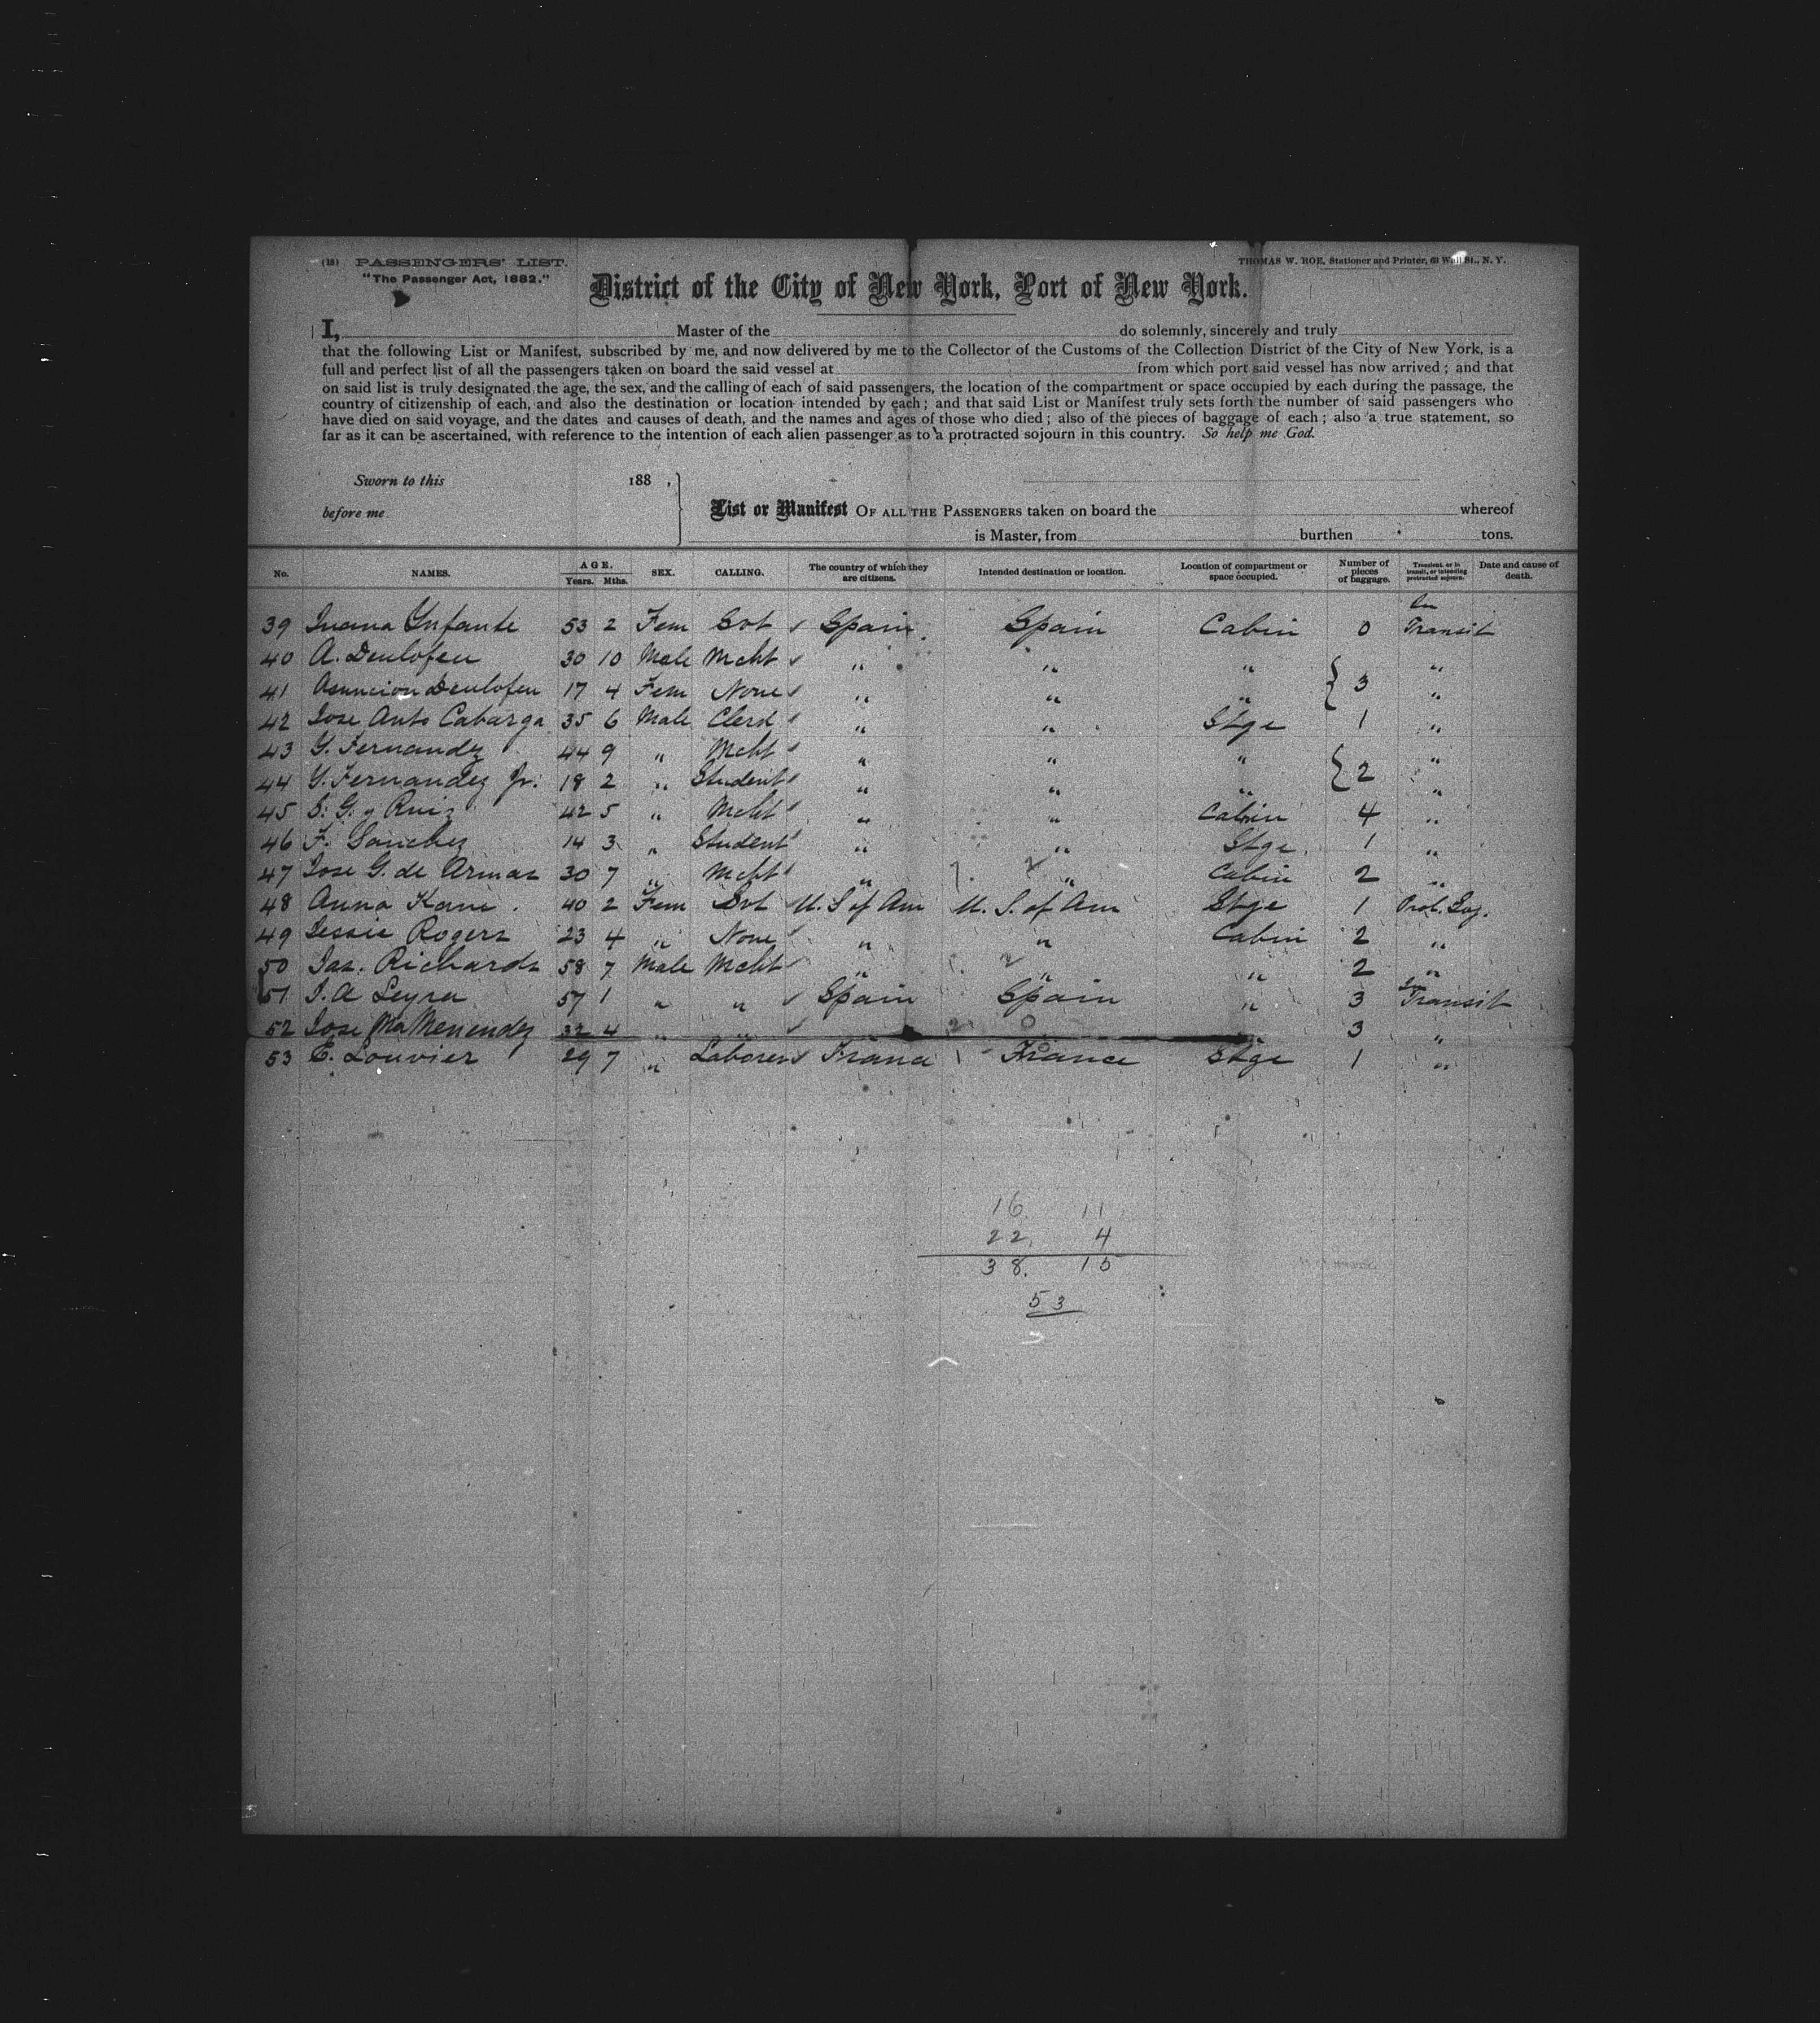 (18) PASSENGERS' LIST.
"The Passenger Act, 1882."
THOMAS W. ROE, Stationer and Printer, 63 Wall St., N. Y.
District of the City of New York, Port of New York.
I, Master of the do solemnly, sincerely and truly
that the following List or Manifest, subscribed by me, and now delivered by me to the Collector of the Customs of the Collection District of the City of New York, is a
full and perfect list of all the passengers taken on board the said vessel at from which port said vessel has now arrived; and that
on said list is truly designated the age, the sex, and the calling of each of said passengers, the location of the compartment or space occupied by each during the passage, the
country of citizenship of each, and also the destination or location intended by each; and that said List or Manifest truly sets forth the number of said passengers who
have died on said voyage, and the dates and causes of death, and the names and ages of those who died; also of the pieces of baggage of each; also a true statement, so
far as it can be ascertained, with reference to the intention of each alien passenger as to a protracted sojourn in this country. So help me God.
Sworn to this 188 ,
before me
List or Manifest OF ALL THE PASSENGERS taken on board the whereof
is Master, from burthen tons.
No. NAMES. AGE. Years. Mths. SEX. CALLING. The country of which they are citizens. Intended destination or location. Location of compartment or space occupied. Number of pieces of baggage. Transient, or in transit, or intending protracted sojourn. Date and cause of death.
39 Juana Ynfante 53 2 Fem Svt Spain Spain Cabin 0 In Transit
40 A. Deulofeu 30 10 Male Mcht " " " "
41 Asuncion Deulofeu 17 4 Fem None " " " 3 "
42 Jose Anto Cabarga 35 6 Male Clerk " " Stge 1 "
43 Y. Fernandz 44 9 " Mcht " " " "
44 Y. Fernandez Jr. 18 2 " Student " " " 2 "
45 S. G. y Ruiz 42 5 " Mcht " " Cabin 4 "
46 F. Sanchez 14 3 " Student " " Stge 1 "
47 Jose G. de Armas 30 7 " Mcht " " Cabin 2 "
48 Anna Kane 40 2 Fem Svt U. S of Am U. S. of Am Stge 1 Prot. Soj.
49 Jessie Rogers 23 4 " None " " Cabin 2 "
50 Jas. Richards 58 7 Male Mcht " " " 2 "
51 J. A Leyra 57 1 " " Spain Spain " 3 In Transit
52 Jose Ma Menendz 32 4 " " 3 "
53 E. Louvier 29 7 " Laborer France France Stge 1 "
16 11
22 4
38. 15
53